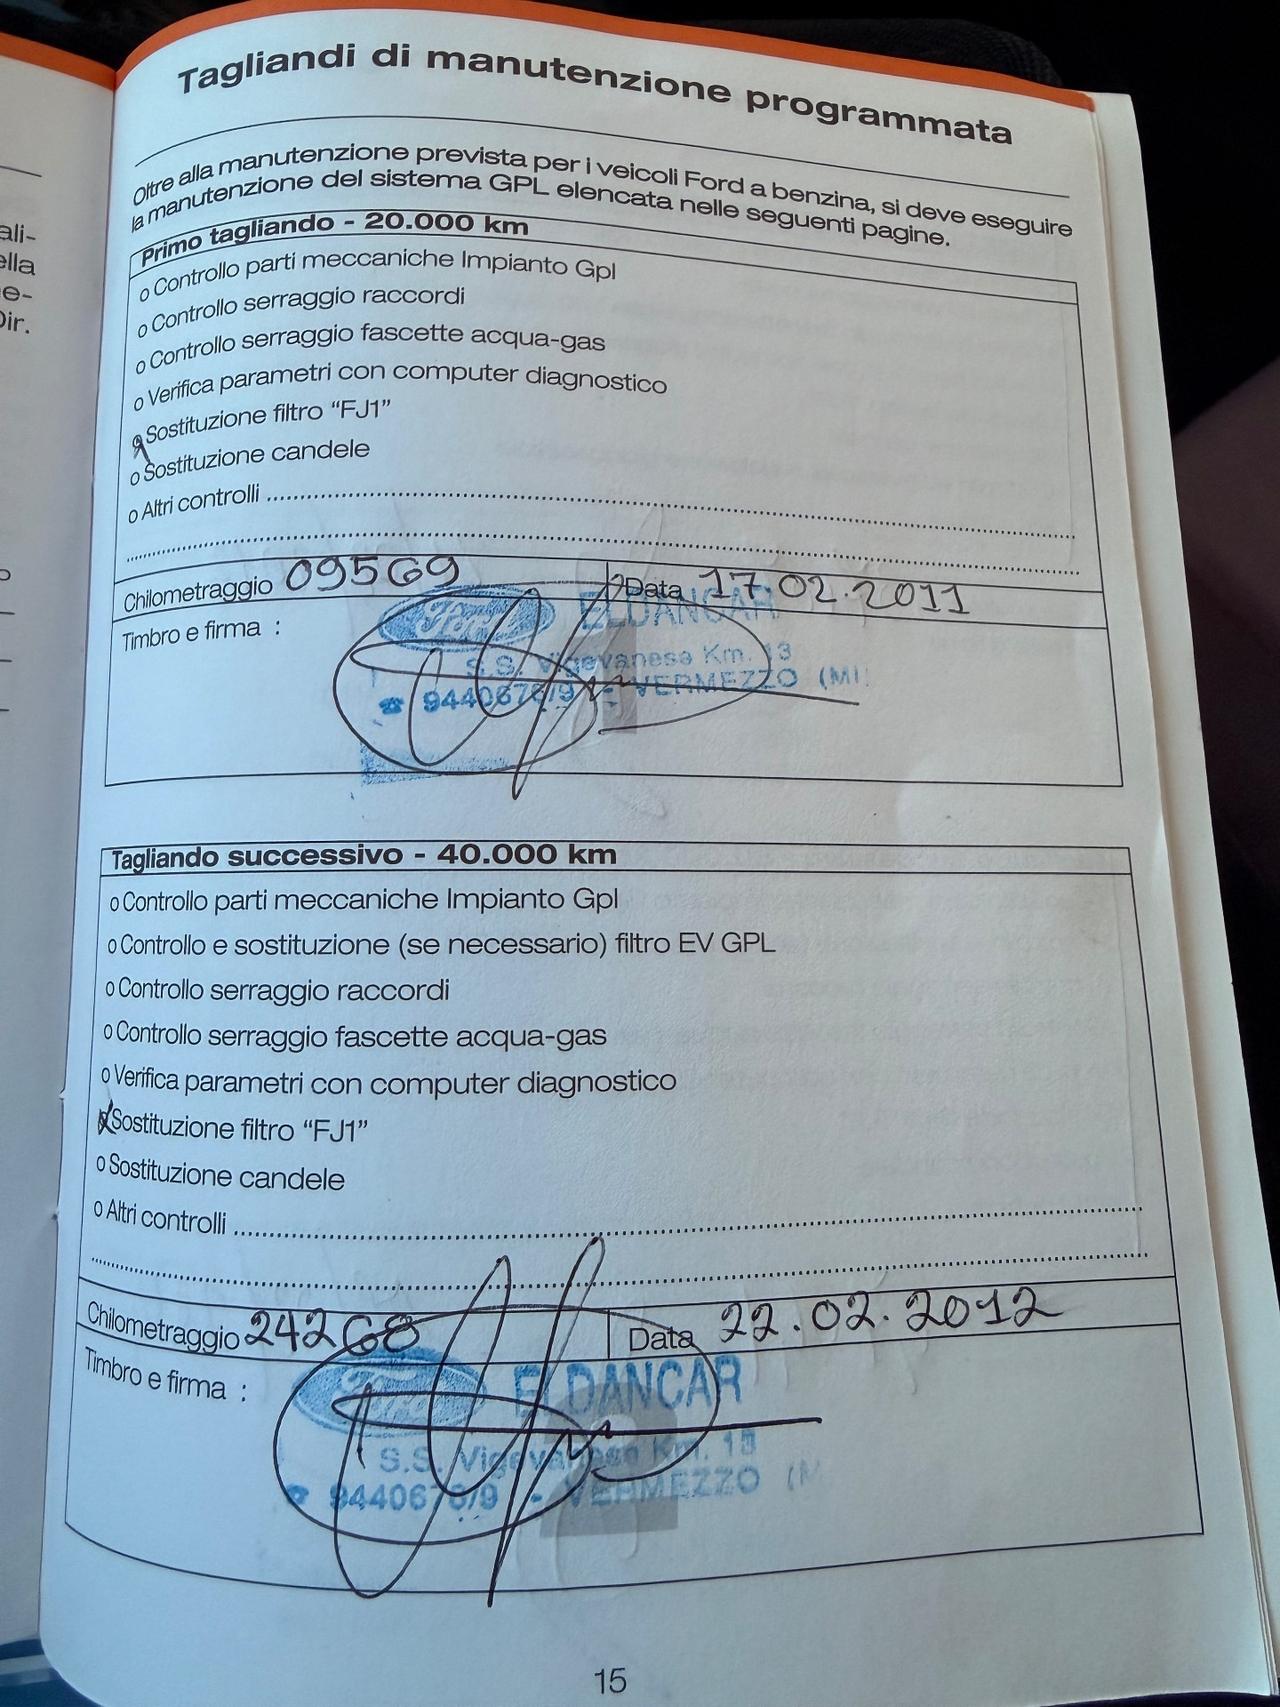 Tagliandi di manutenzione programmata
Oltre alla manutenzione prevista per i veicoli Ford a benzina, si deve eseguire
la manutenzione del sistema GPL elencata nelle seguenti pagine.
Primo tagliando - 20.000 km
o Controllo parti meccaniche Impianto Gpl
o Controllo serraggio raccordi
o Controllo serraggio fascette acqua-gas
o Verifica parametri con computer diagnostico
o Sostituzione filtro “FJ1”
o Sostituzione candele
o Altri controlli
Chilometraggio 09569 Data 17.02.2011
Timbro e firma :
Ford ELDANCAR
S.S. Vigevanese Km. 13
☎ 9440678/9 - VERMEZZO (MI)
Tagliando successivo - 40.000 km
o Controllo parti meccaniche Impianto Gpl
o Controllo e sostituzione (se necessario) filtro EV GPL
o Controllo serraggio raccordi
o Controllo serraggio fascette acqua-gas
o Verifica parametri con computer diagnostico
o Sostituzione filtro “FJ1”
o Sostituzione candele
o Altri controlli
Chilometraggio 24268 Data 22.02.2012
Timbro e firma :
Ford ELDANCAR
S.S. Vigevanese Km. 13
☎ 9440678/9 - VERMEZZO (M
15
ali-
ella
e-
Dir.